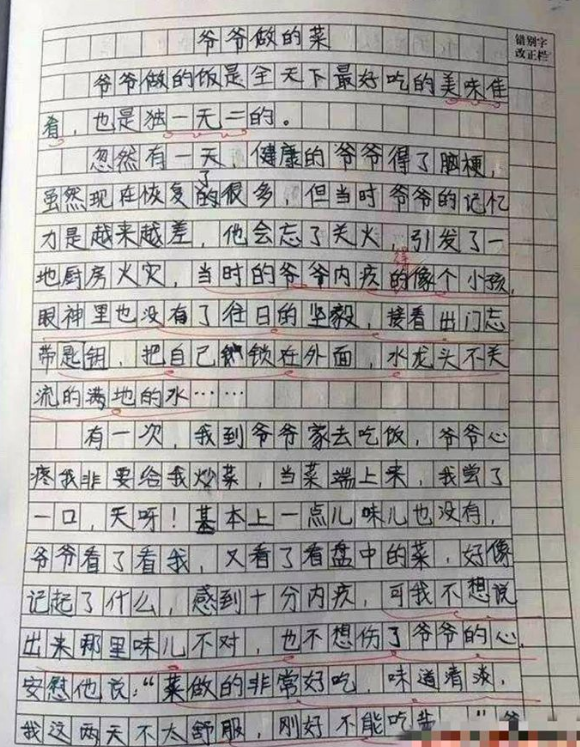 爷爷做的菜
错别字
改正栏
爷爷做的饭是全天下最好吃的美味佳
肴，也是独一无二的。
忽然有一天，健康的爷爷得了脑梗，
虽然现在恢复了的很多，但当时爷爷的记忆
力是越来越差，他会忘了关火，引发了一
地厨房火灾，当时的爷爷内疚的像个小孩，
得
眼神里也没有了往日的坚毅，接着出门忘
带匙钥，把自己锁在外面，水龙头不关
流的满地的水……
有一次，我到爷爷家去吃饭，爷爷心
疼我非要给我炒菜，当菜端上来，我尝了
一口，天呀！基本上一点儿味儿也没有，
爷爷看了看我，又看了看盘中的菜，好像
记起了什么，感到十分内疚，可我不想说
出来那里味儿不对，也不想伤了爷爷的心，
安慰他说：“菜做的非常好吃，味道清淡，
我这两天不太舒服，刚好不能吃